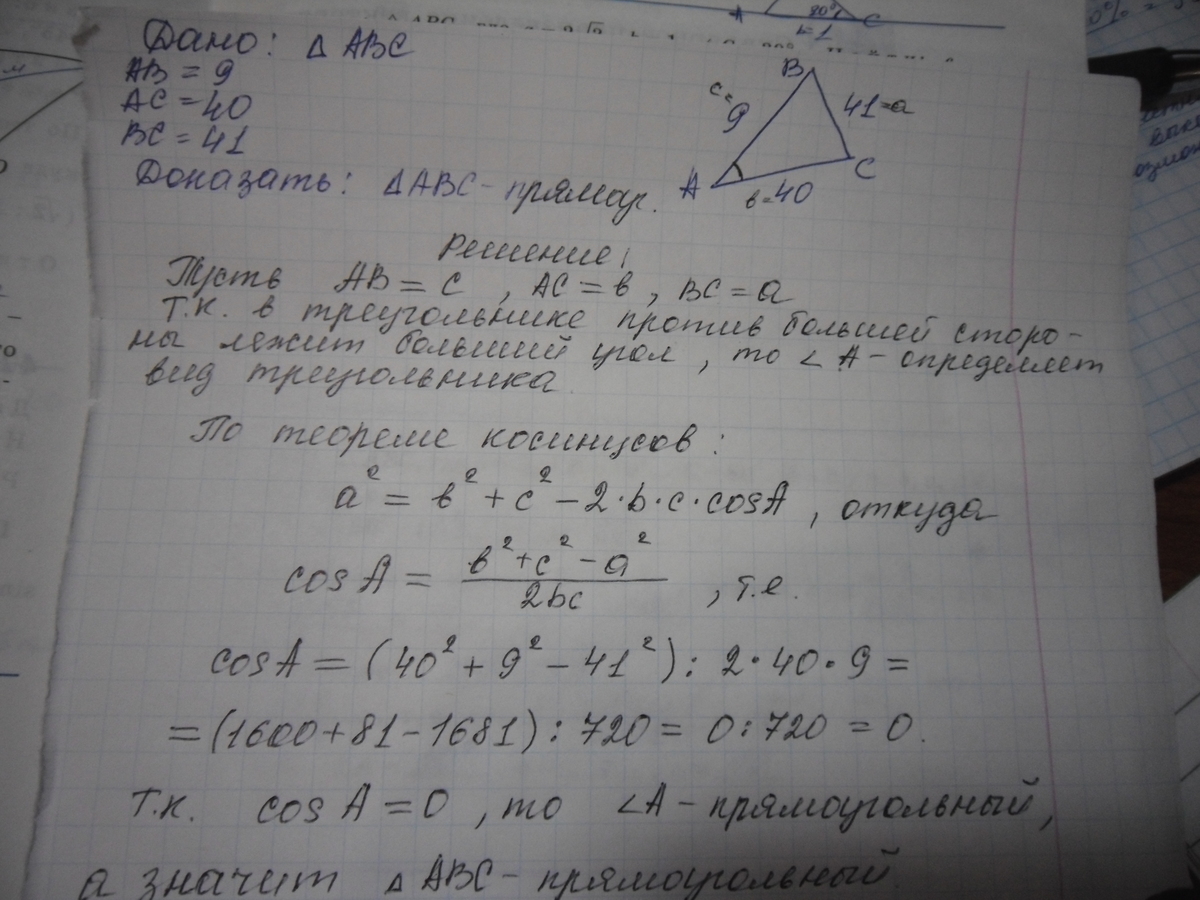 A 80° C
b=1
Дано: △ ABC
AB = 9
AC = 40
BC = 41
Доказать: △ABC - прямоуг.
B
c=9
41=a
A
C
в=40
Решение:
Пусть AB = c, AC = в, BC = a
Т.к. в треугольнике против большей сторо-
ны лежит больший угол, то ∠A - определяет
вид треугольника.
По теореме косинусов:
a² = в² + c² - 2·b·c·cosA, откуда
cosA = (в² + c² - a²)/2bc, т.е.
cosA = (40² + 9² - 41²) : 2·40·9 =
= (1600 + 81 - 1681) : 720 = 0 : 720 = 0.
Т.к. cosA = 0, то ∠A - прямоугольный,
а значит △ABC - прямоугольный.